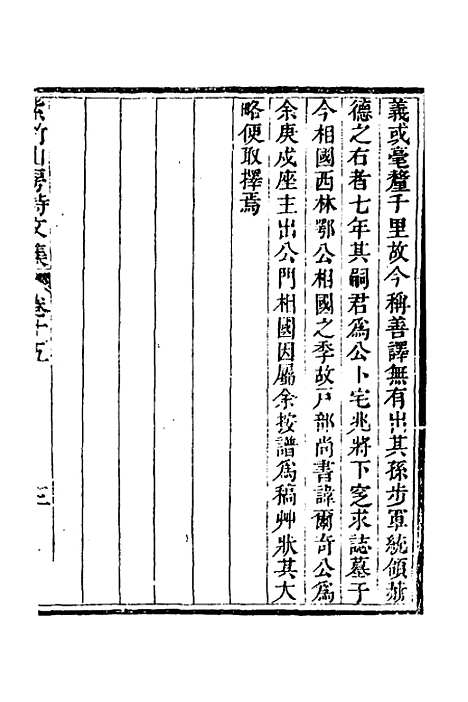 義或毫釐千里故今稱善譯無有出其孫步軍統領赫
德之右者七年其嗣君爲公卜宅兆將下窆求誌墓子
今相國西林鄂公相國之季故戸部尚書諱爾奇公爲
余庚戍座主出公門相國因屬余按譜爲稿艸狀其大
略便取擇焉
紫竹山房詩文集 卷十五 三